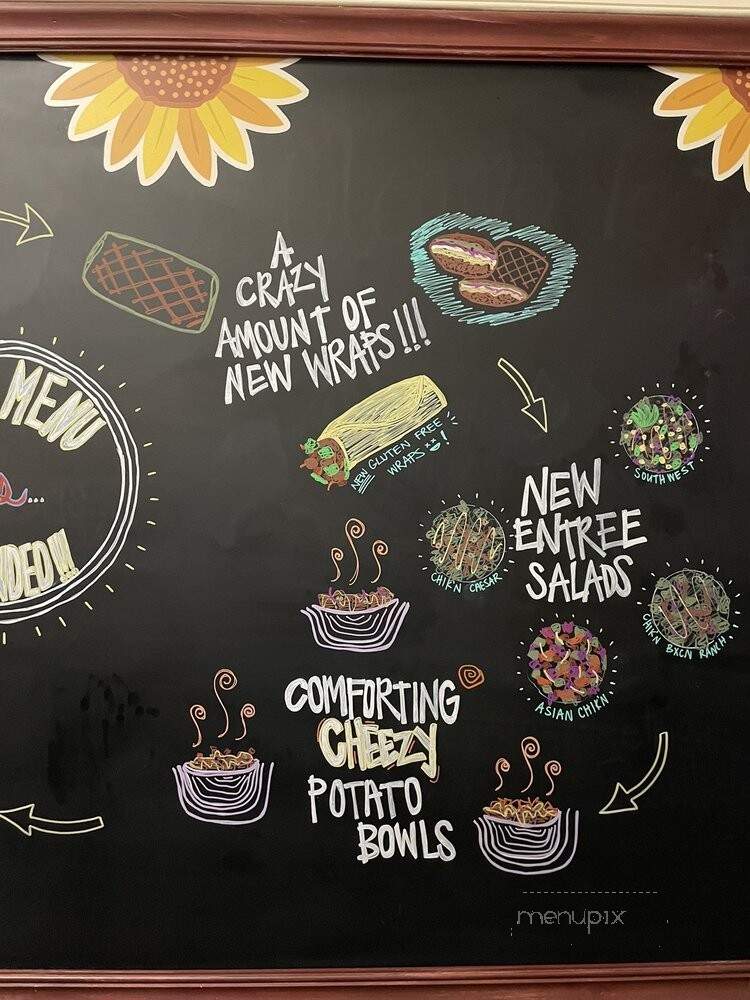 A
CRAZY
AMOUNT OF
NEW WRAPS!!!
NEW GLUTEN FREE
WRAPS !
MENU
...
NEW
ENTREE
SALADS
SOUTHWEST
CHIK'N CAESAR
CHIKN BXCN RANCH
ASIAN CHIKN
COMFORTING
CHEEZY
POTATO
BOWLS
menupix